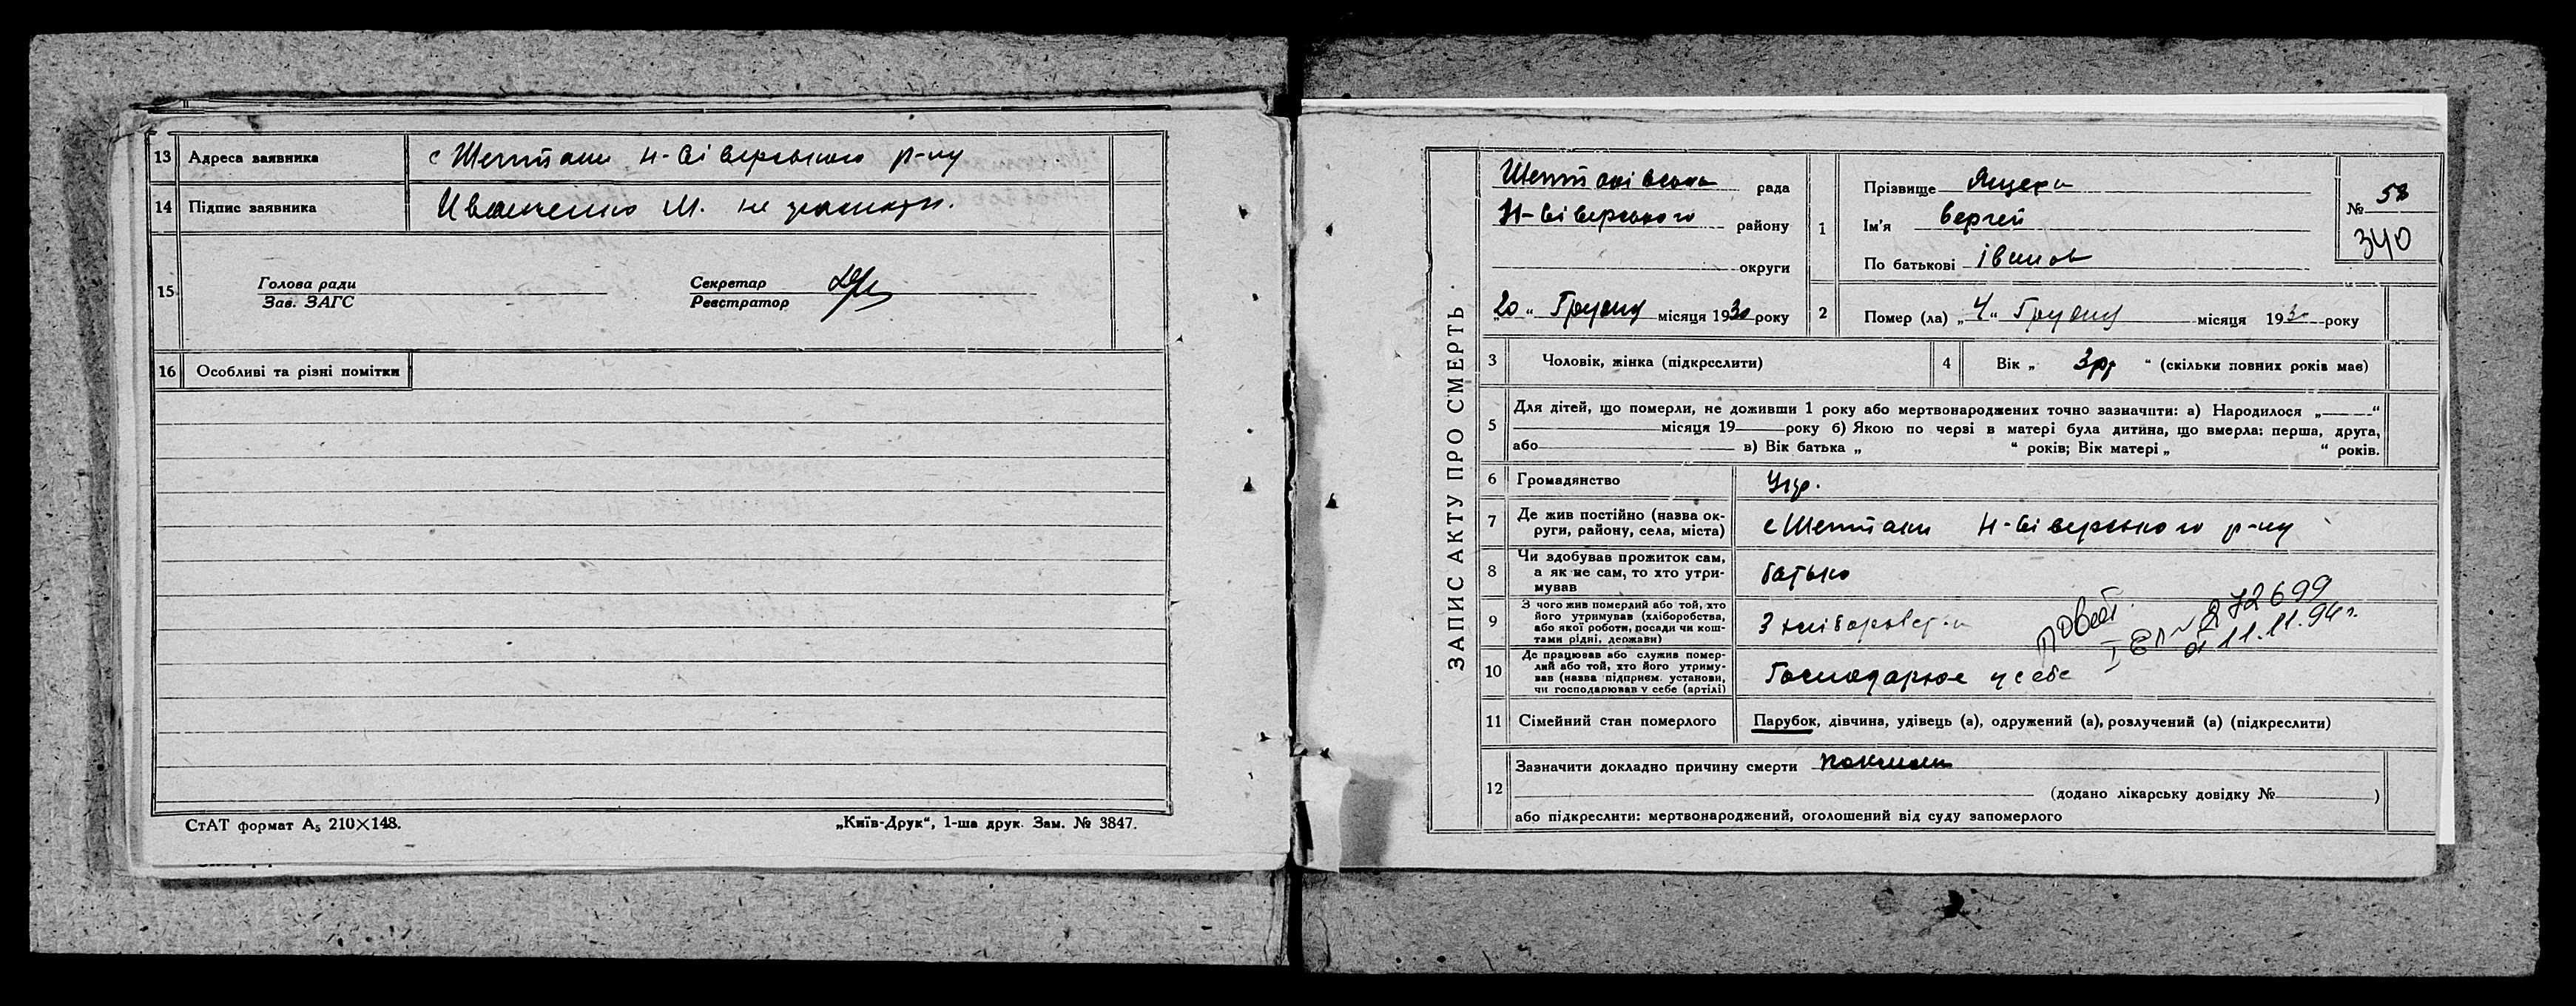 13 Адреса заявника с Шептаки Н-Сіверського р-ну
14 Підпис заявника Иванченко М. не
15 Голова ради
Зав. ЗАГС
Секретар
Реєстратор
16 Особливі та різні помітки
СтАТ формат А₅ 210×148.
„Київ-Друк“, 1-ша друк. Зам. № 3847.
ЗАПИС АКТУ ПРО СМЕРТЬ
Шептаківська рада
Н-Сіверського району
округи
„20“ Грудня місяця 1930 року
1 Прізвище
Ім'я Сергей
По батькові Іванов
№ 58
340
2 Помер (ла) „4“ Грудня місяця 1930 року
3 Чоловік, жінка (підкреслити)
4 Вік „ 3 “ (скільки повних років має)
5 Для дітей, що померли, не доживши 1 року або мертвонароджених точно зазначити: а) Народилося „ “
місяця 19 року б) Якою по черві в матері була дитина, що вмерла: перша, друга,
або в) Вік батька „ “ років; Вік матері „ “ років.
6 Громадянство Укр.
7 Де жив постійно (назва ок-
руги, району, села, міста) с Шептаки Н-Сіверського р-ну
8 Чи здобував прожиток сам,
а як не сам, то хто утри-
мував батько
9 З чого жив померлий або той, хто
його утримував (хліборобства,
або якої роботи, посади чи кош-
тами рідні, держави) З
10 Де працював або служив помер-
лий або той, хто його утриму-
вав (назва підприєм. установи,
чи господарював у себе (артілі) Господарює у себе
72699
от 11.11.94г.
11 Сімейний стан померлого Парубок, дівчина, удівець (а), одружений (а), розлучений (а) (підкреслити)
12 Зазначити докладно причину смерти
(додано лікарську довідку № )
або підкреслити: мертвонароджений, оголошений від суду запомерлого